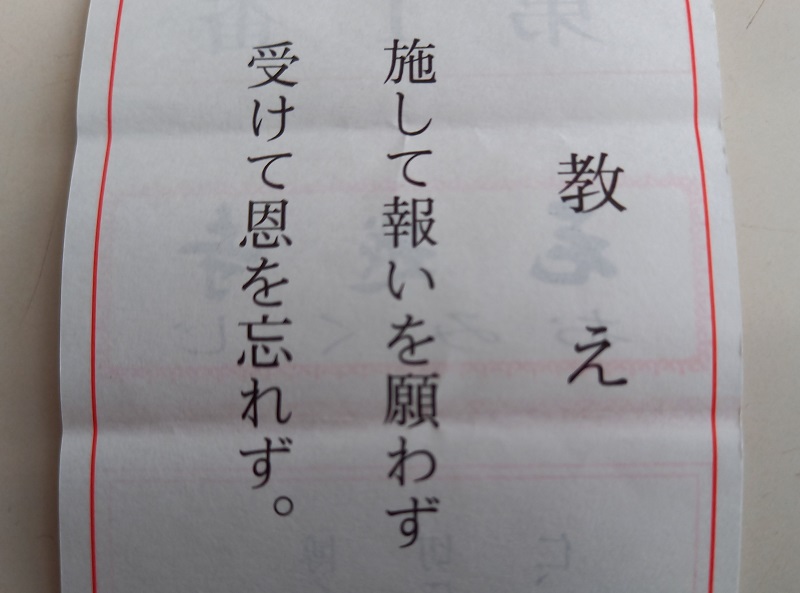 教え
施して報いを願わず
受けて恩を忘れず。